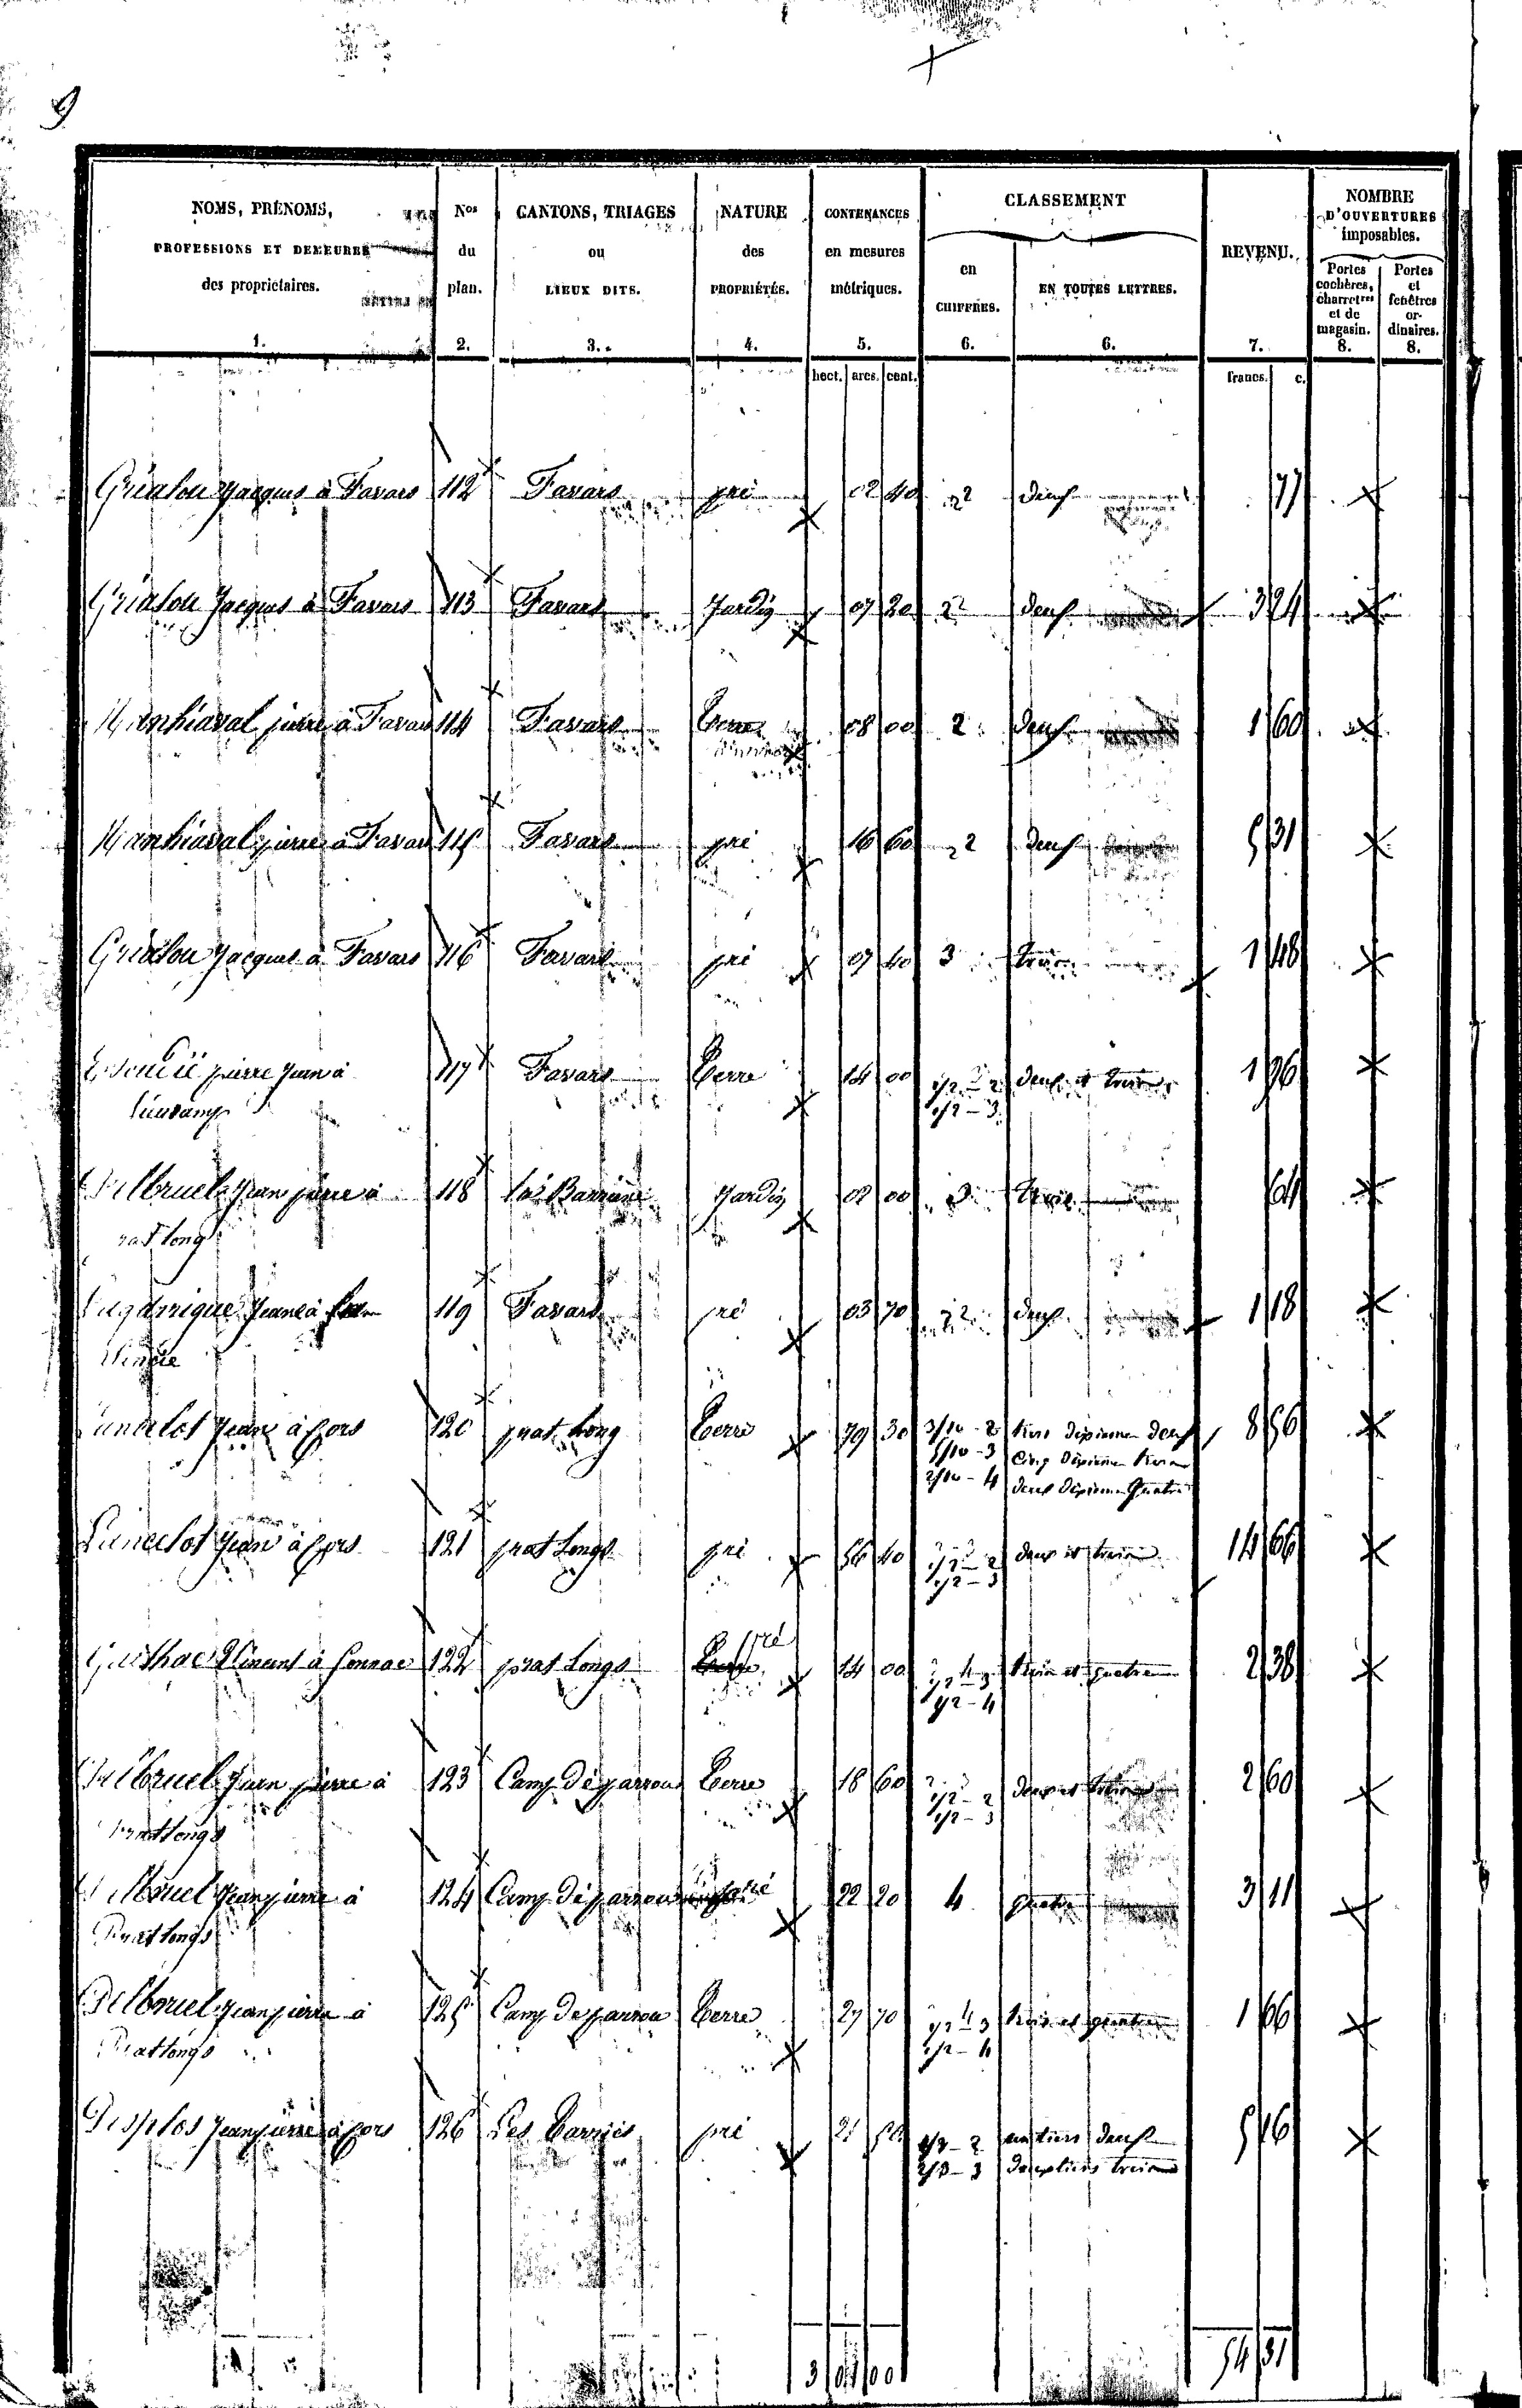 9
NOMS, PRÉNOMS,
PROFESSIONS ET DEMEURES
des proprietaires.
1.
Nos
du
plan.
2.
CANTONS, TRIAGES
ou
LIEUX DITS.
3.
NATURE
des
PROPRIÉTÉS.
4.
CONTENANCES
en mesures
métriques.
5.
CLASSEMENT
en
CHIFFRES.
6.
EN TOUTES LETTRES.
6.
REVENU.
7.
NOMBRE
D'OUVERTURES
imposables.
Portes
cochères,
charretres
et de
magasin.
8.
Portes
et
fenêtres
or-
dinaires.
8.
hect. ares. cent. francs. c.
Grialou Jacques à Favars 112 Favars pré 02 40 2 deux 77
Grialou Jacques à Favars 113 Favars Jardin 07 20 2 deux 3 24
pierre à Favars 114 Favars Terre 08 00 2 deux 1 60
pierre à Favars 115 Favars pré 16 60 2 deux 5 31
Grialou Jacques à Favars 116 Favars pré 07 40 3 trois 1 48
pierre Jean à 117 Favars Terre 14 00 1/2 - 2 deux et trois 1 96
1/2 - 3
Delbruel Jean pierre à 118 Jardin 02 00 3 trois 64
rat long
Jeanne à 119 Favars pré 03 70 2 deux 1 18
Jean à fors 120 prat Long Terre 79 30 3/10 - 2 trois dixieme deux 8 56
5/10 - 3 Cinq Dixieme trois
2/10 - 4 deux dixieme Quatre
Jean à fors 121 prat Longs pré 56 40 1/2 - 2 deux et trois 14 66
1/2 - 3
à Connac 122 prat Longs pré 14 00 1/2 - 3 trois et quatre 2 38
1/2 - 4
Delbruel Jean pierre à 123 Camp de parrou Terre 18 60 1/2 - 2 deux et trois 2 60
1/2 - 3
Pratlongs
Delbruel Jean pierre à 124 Camp de parrou pré 22 20 4 quatre 3 11
Pratlongs
Delbruel Jean pierre à 125 Camp de parrou Terre 27 70 1/2 - 3 trois et quatre 1 66
1/2 - 4
Pratlongs
Desplos Jean pierre à fors 126 Les pré 21 1/3 - 2 un tiers deux 5 16
2/3 - 3 deux tiers trois
3 01 00 54 31